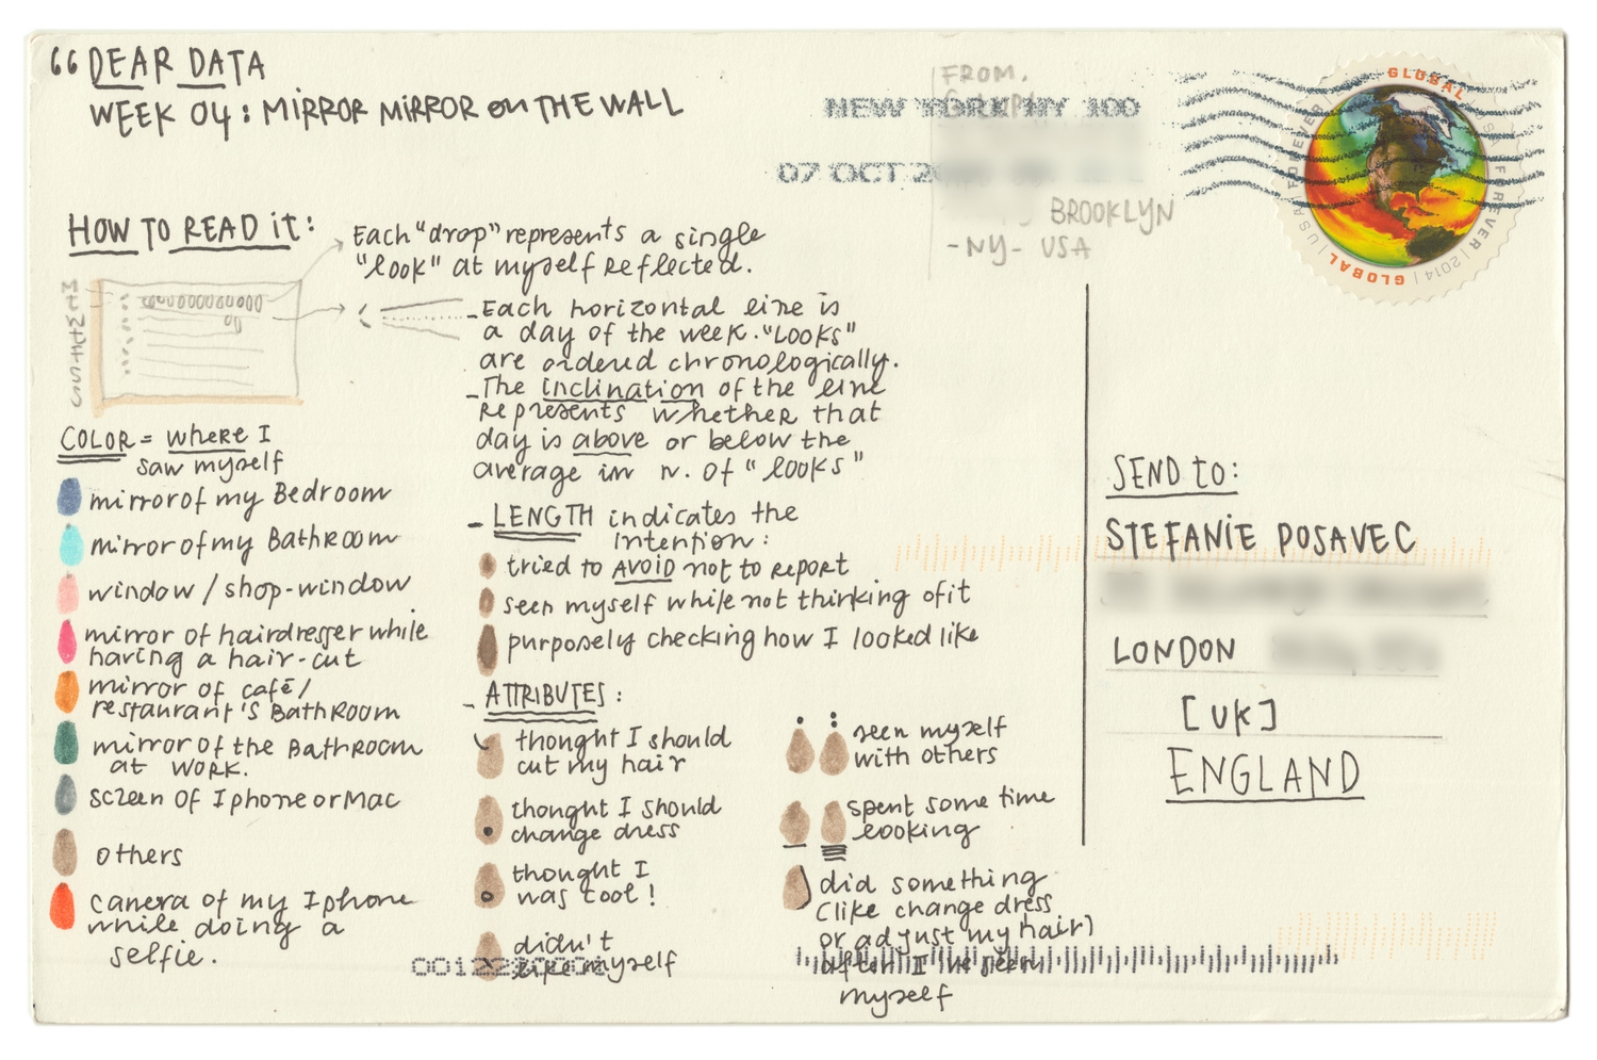 66 DEAR DATA
WEEK 04: MIRROR MIRROR on THE WALL
FROM.
NEW YORK NY 100
07 OCT
BROOKLYN
-NY- USA
GLOBAL
USA FOREVER
FOREVER | 2014 | GLOBAL
HOW TO READ it:
Each "drop" represents a single
"look" at myself reflected.
- Each horizontal line is
a day of the week. "Looks"
are ordered chronologically.
- The inclination of the line
represents whether that
day is above or below the
average in n. of "looks"
COLOR = where I
saw myself
mirror of my Bedroom
mirror of my BathRoom
window / shop-window
mirror of hairdresser while
having a hair-cut
mirror of café/
restaurant's BathRoom
mirror of the BathRoom
at work.
screen of Iphone or Mac
others
camera of my Iphone
while doing a
selfie.
- LENGTH indicates the
intention:
tried to AVOID not to report
seen myself while not thinking of it
purposely checking how I looked like
- ATTRIBUTES:
thought I should
cut my hair
thought I should
change dress
thought I
was cool!
didn't
like myself
seen myself
with others
spent some time
looking
did something
(like change dress
or adjust my hair)
after I've seen
myself
SEND to:
STEFANIE POSAVEC
LONDON
[UK]
ENGLAND